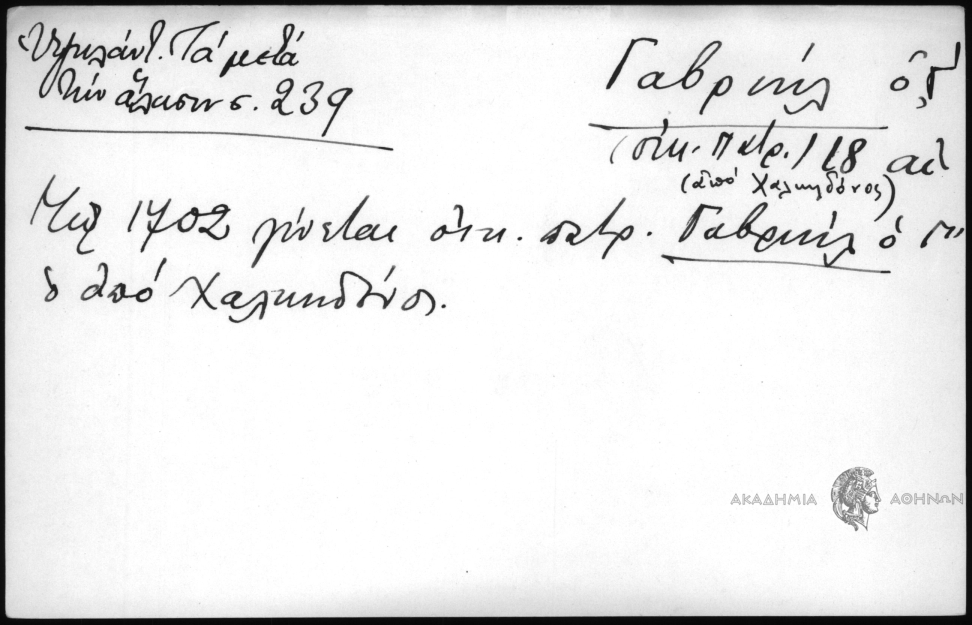 Ὑψηλάντ. Τά μετά
τήν ἅλωσιν σ. 239
Γαβριήλ ὁ Γ'
(οἰκ. πατρ.) 18 αἰ
(ἀπό Χαλκηδόνος)
1702 γίνεται οἰκ. πατρ. Γαβριήλ ὁ Γ'
ὁ ἀπό Χαλκηδόνος.
ΑΚΑΔΗΜΙΑ ΑΘΗΝΩΝ